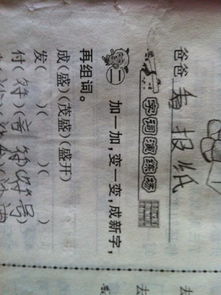 爸爸看报纸
字词演练场
二 加一加,变一变,成新字,
再组词。
成(盛)(茂盛)(盛开)
发( )( )( )
付(符)(音符)(符号)